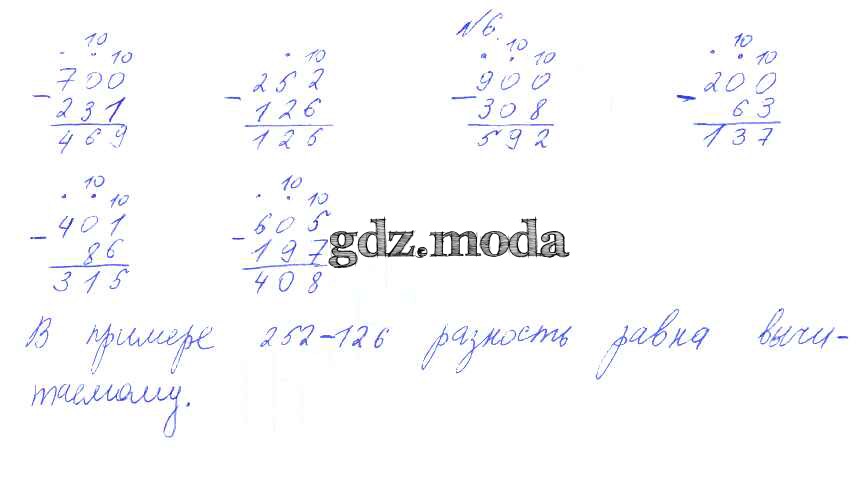 №6.
10 10
700
- 231
469
10
252
- 126
126
10 10
900
- 308
592
10 10
200
- 63
137
10 10
401
- 86
315
10 10
605
- 197
408
gdz.moda
В примере 252-126 разность равна вычи-
таемому.